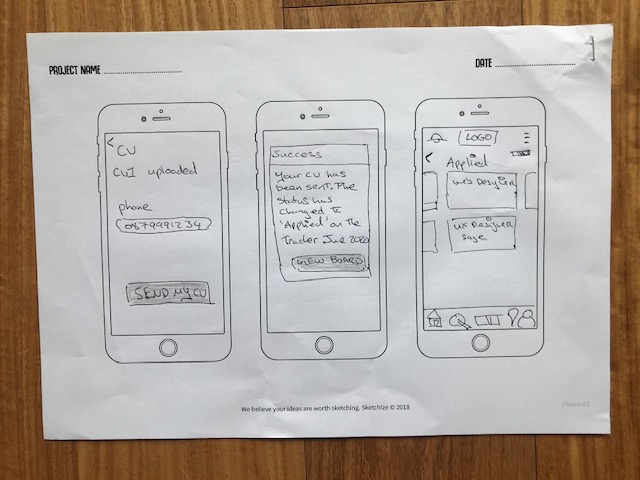 PROJECT NAME
DATE
1
CV
CV1 uploaded
phone
0879991234
SEND MY CV
Success
Your CV has
been sent. The
status has
changed to
'Applied' on the
Tracker
VIEW BOARD
LOGO
Applied
Web Designer
UX Designer
Sage
We believe your ideas are worth sketching. Sketchize © 2018